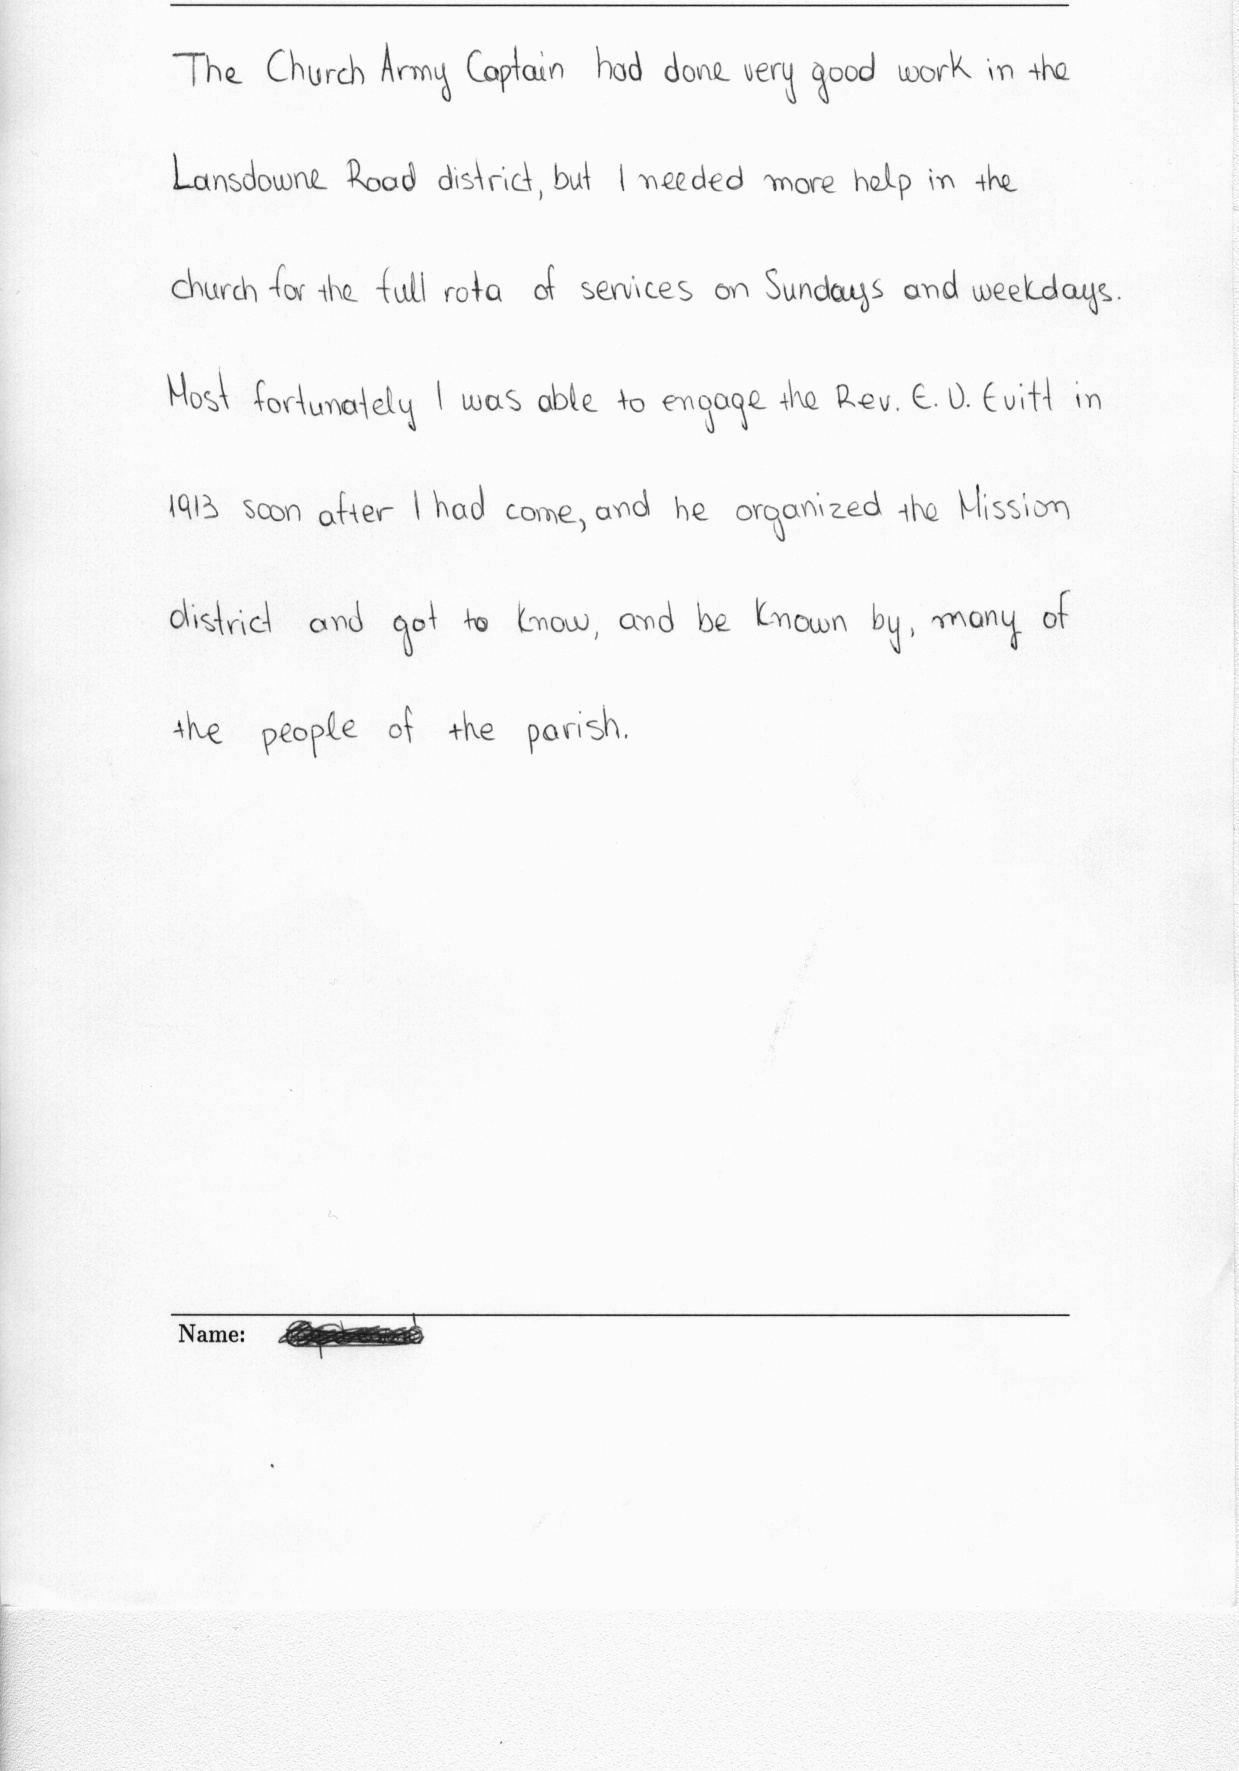 The Church Army Captain had done very good work in the
Lansdowne Road district, but I needed more help in the
church for the full rota of services on Sundays and weekdays.
Most fortunately I was able to engage the Rev. E. V. Evitt in
1913 soon after I had come, and he organized the Mission
district and got to know, and be known by, many of
the people of the parish.
Name: